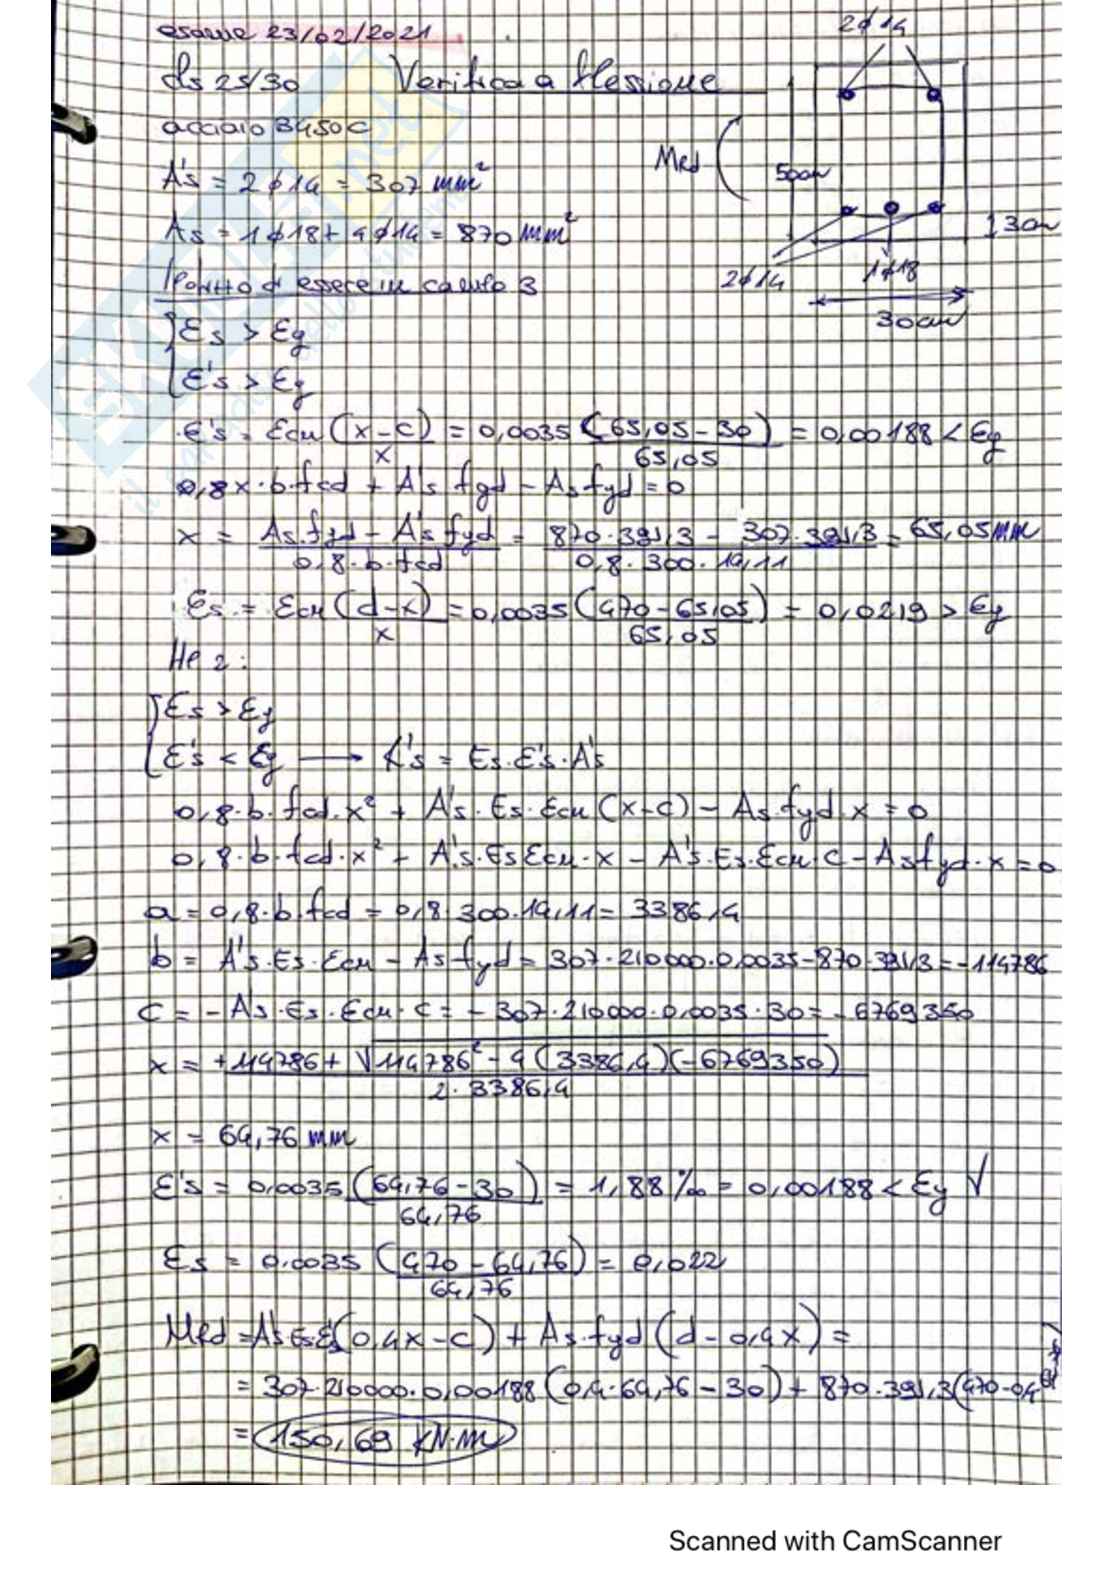 esame 23/02/2021
cls 25/30 Verifica a flessione
acciaio B450C
A's = 2φ14 = 307 mm²
As = 1φ18 + 4φ14 = 870 mm²
Ipotizzo di essere in campo 3
2φ14
Med
50cm
3cm
2φ14 1φ18
30cm
{ εs > εy
ε's > εy
ε's = εcu (x-c)/x = 0,0035 (65,05-30)/65,05 = 0,00188 < εy
0,8x·b·fcd + A's fyd - As fyd = 0
x = (As·fyd - A's fyd)/(0,8·b·fcd) = (870·391,3 - 307·391,3)/(0,8·300·14,11) = 65,05mm
εs = εcu (d-x)/x = 0,0035 (470-65,05)/65,05 = 0,0219 > εy
Hp 2:
{ εs > εy
ε's < εy → K's = Es·ε's·A's
0,8·b·fcd·x² + A's·Es·εcu (x-c) - As·fyd·x = 0
0,8·b·fcd·x² + A's·Es εcu·x - A's·Es·εcu·c - As fyd·x = 0
a = 0,8·b·fcd = 0,8·300·14,11 = 3386,4
b = A's·Es·εcu - As fyd = 307·210000·0,0035-870·391,3 = -114786
c = -A's·Es·εcu·c = -307·210000·0,0035·30 = -6769350
x = (+114786 + √(114786² - 4(3386,4)(-6769350)))/(2·3386,4)
x = 64,76 mm
ε's = 0,0035 (64,76-30)/64,76 = 1,88‰ = 0,00188 < εy √
εs = 0,0035 (470-64,76)/64,76 = 0,022
Mrd = A's Es ε's (0,4x-c) + As·fyd (d-0,4x) =
= 307·210000·0,00188 (0,4·64,76-30) + 870·391,3(470-0,4
= 150,69 kN·m
Scanned with CamScanner